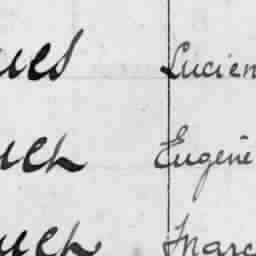 ues Lucien
uch Eugène
uch Marc